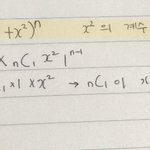 +x²)ⁿ x² 의 계수
x ₙC₁ x² 1ⁿ⁻¹
₁ x 1 x x² → nC₁ 이 x